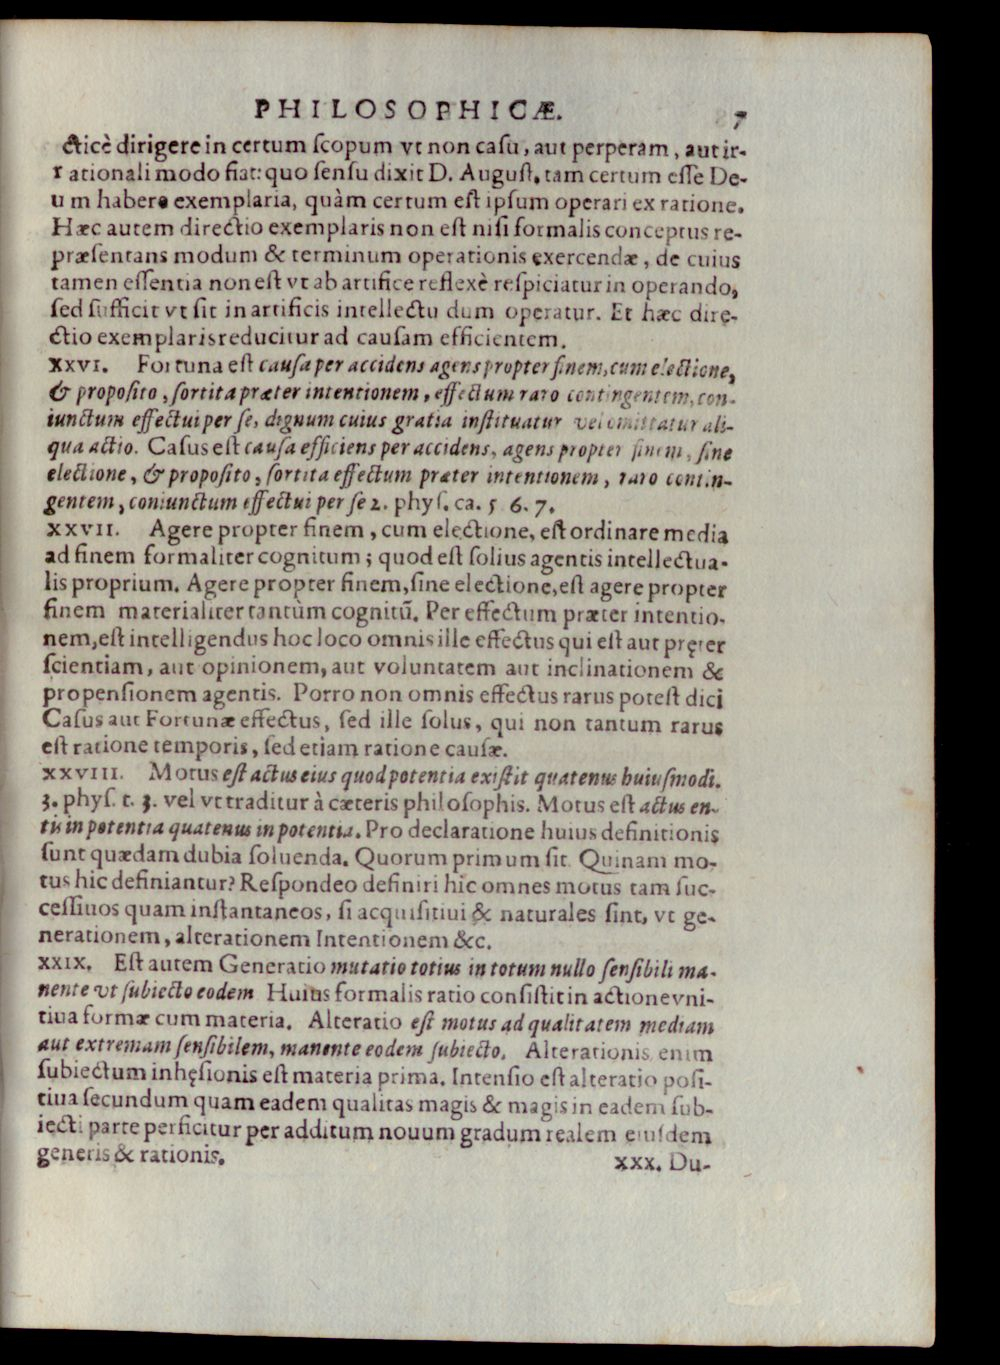 PHILOSOPHICÆ. 7
cticè dirigere in certum ſcopum vt non caſu, aut perperam, aut ir-
rationali modo fiat: quo ſenſu dixit D. Auguſt. tam certum eſſe De-
um habere exemplaria, quàm certum eſt ipſum operari ex ratione.
Hæc autem directio exemplaris non eſt niſi formalis conceptus re-
præſentans modum & terminum operationis exercendæ, de cuius
tamen eſſentia non eſt vt ab artifice reflexè reſpiciatur in operando,
ſed ſufficit vt ſit in artificis intellectu dum operatur. Et hæc dire-
ctio exemplaris reducitur ad cauſam efficientem.
XXVI. Fortuna eſt cauſa per accidens agens propter finem, cum electione,
& propoſito, ſortita præter intentionem, effectum raro contingentem, con-
iunctum effectui per ſe, dignum cuius gratia inſtituatur vel omittatur ali-
qua actio. Caſus eſt cauſa efficiens per accidens, agens propter finem, ſine
electione, & propoſito, ſortita effectum præter intentionem, raro contin-
gentem, coniunctum effectui per ſe 2. phyſ. ca. 5 6. 7.
XXVII. Agere propter finem, cum electione, eſt ordinare media
ad finem formaliter cognitum; quod eſt ſolius agentis intellectua-
lis proprium. Agere propter finem, ſine electione, eſt agere propter
finem materialiter tantùm cognitū. Per effectum præter intentio-
nem, eſt intelligendus hoc loco omnis ille effectus qui eſt aut pręter
ſcientiam, aut opinionem, aut voluntatem aut inclinationem &
propenſionem agentis. Porro non omnis effectus rarus poteſt dici
Caſus aut Fortunæ effectus, ſed ille ſolus, qui non tantum rarus
eſt ratione temporis, ſed etiam ratione cauſæ.
XXVIII. Motus eſt actus eius quod potentia exiſtit quatenus huiuſmodi.
3. phyſ. t. 3. vel vt traditur à cæteris philoſophis. Motus eſt actus en-
tis in potentia quatenus in potentia. Pro declaratione huius definitionis
ſunt quædam dubia ſoluenda. Quorum primum ſit Quinam mo-
tus hic definiantur? Reſpondeo definiri hic omnes motus tam ſuc-
ceſſiuos quam inſtantaneos, ſi acquiſitiui & naturales ſint, vt ge-
nerationem, alterationem Intentionem &c.
XXIX. Eſt autem Generatio mutatio totius in totum nullo ſenſibili ma-
nente vt ſubiecto eodem Huius formalis ratio conſiſtit in actione vni-
tiua formæ cum materia. Alteratio eſt motus ad qualitatem mediam
aut extremam ſenſibilem, manente eodem ſubiecto. Alterationis enim
ſubiectum inhęſionis eſt materia prima. Intenſio eſt alteratio poſi-
tiua ſecundum quam eadem qualitas magis & magis in eadem ſub-
iecti parte perficitur per additum nouum gradum realem eiuſdem
generis & rationis.
XXX. Du-